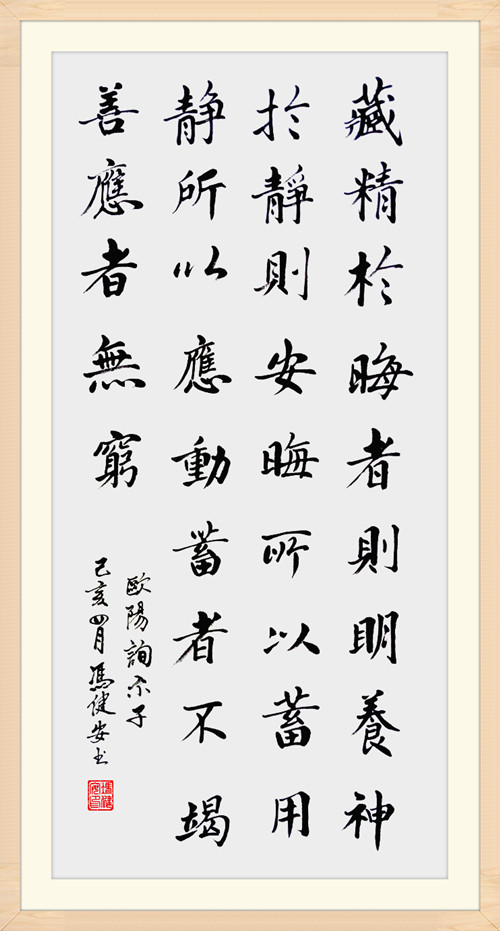 藏精於晦者則明養神
於靜則安晦所以蓄用
静所以應動蓄者不竭
善應者無窮
歐陽詢示子
己亥四月馮健安书